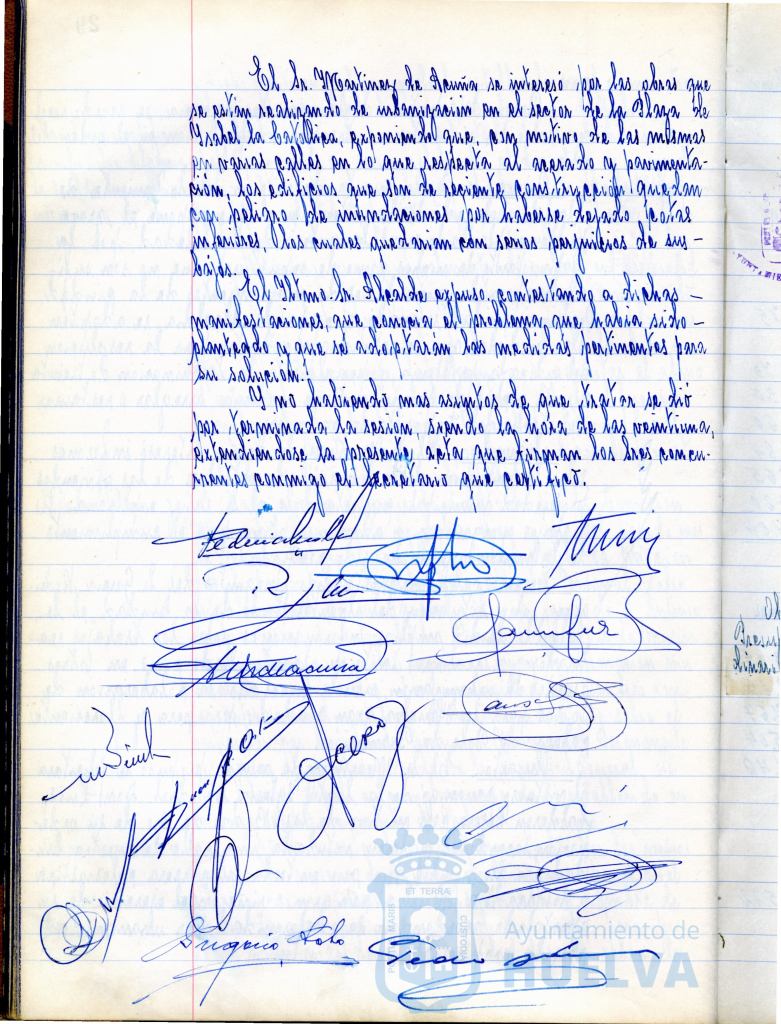 El Sr. Martinez de Acuña se interesó por las obras que
se están realizando de urbanización en el sector de la Plaza de
Isabel la Católica, exponiendo que, con motivo de las mismas
en varias calles en lo que respecta al acerado y pavimenta-
ción, los edificios que son de reciente construcción quedan
con peligro de inundaciones por haberse dejado cotas
inferiores, los cuales quedarian con serios perjuicios de sus -
bajos.
El Iltmo. Sr. Alcalde expuso, contestando a dichas -
manifestaciones, que conocia el problema que habia sido -
planteado y que se adoptaran las medidas pertinentes para
su solución.
Y no habiendo mas asuntos de que tratar se dió
por terminada la sesión, siendo la hora de las veintiuna,
extendiendose la presente acta que firman los Sres concu-
rrentes conmigo el Secretario que certifico.
Gregorio
Ayuntamiento de
HUELVA